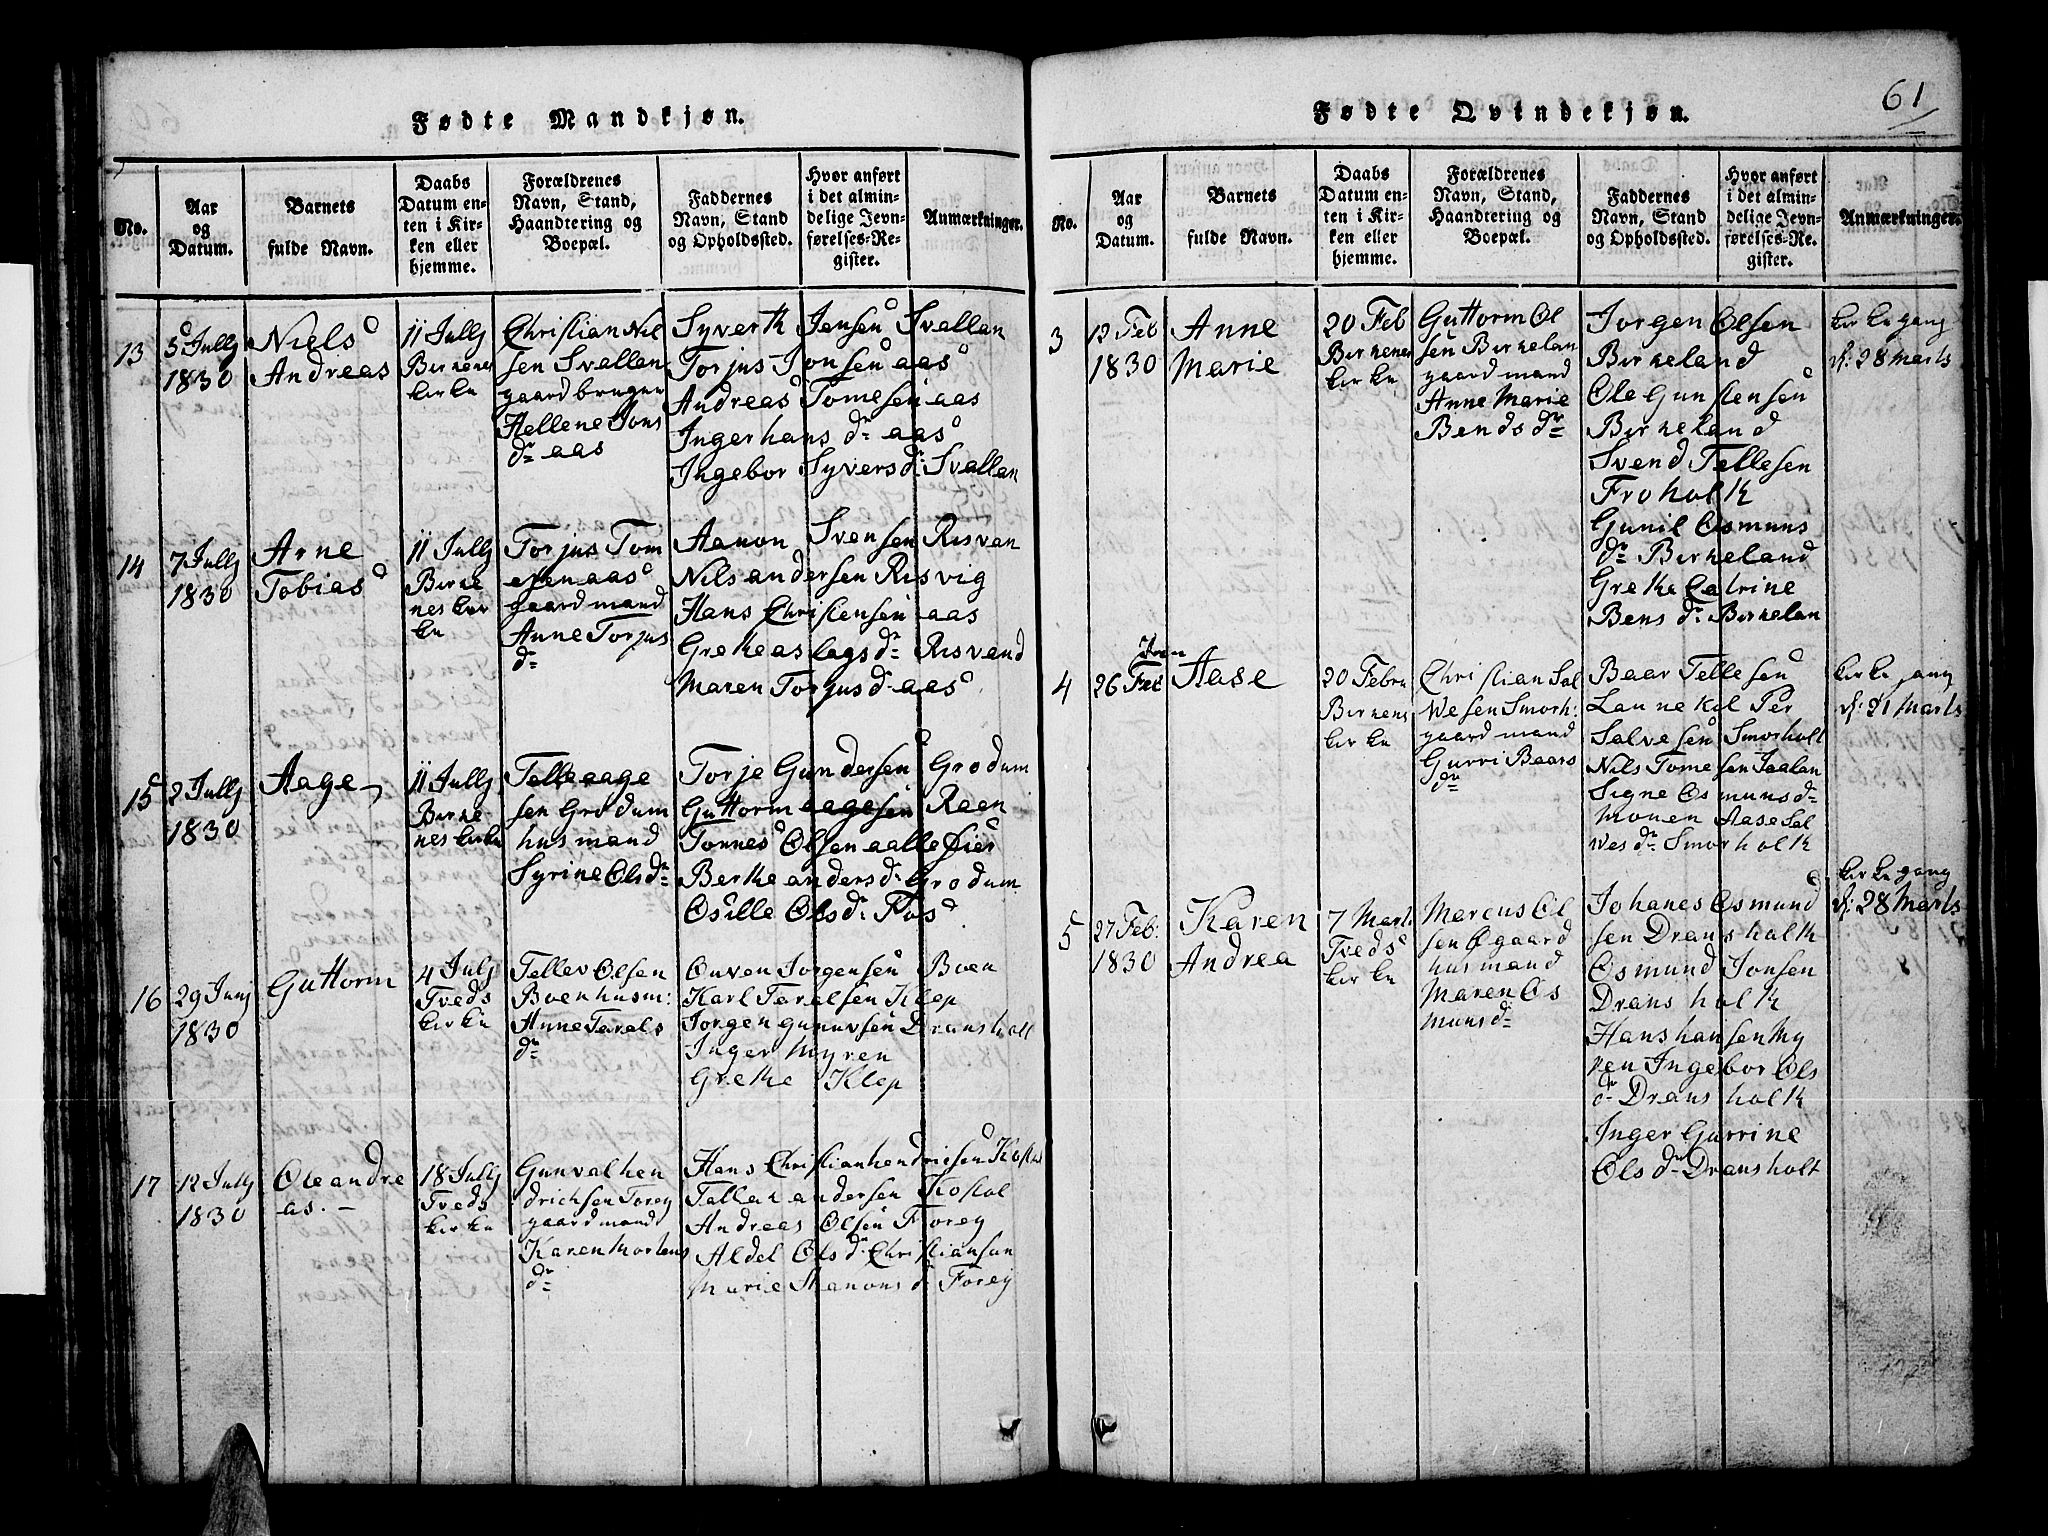 Fødte Mandkjøn.
No.
Aar
og
Datum.
Barnets
fulde Navn.
Daabs
Datum en-
ten i Kir-
ken eller
hjemme.
Forældrenes
Navn, Stand,
Haandtering og
Boepæl.
Faddernes
Navn, Stand
og Opholdssted.
Hvor anført
i det almin-
delige Jevn-
førelses-Re-
gister.
Anmærkninger.
13
5 Jully
1830
Niels
Andreas
11 Jully
Birkenes
kirke
Christian Niel
sen Svallan
gaardbruger
Hellene Jons
dr aas
Syverth Jensen Svallan
Torjus Jonsen aas
Andreas Tomesen aas
Inger hans dr aas
Ingebor Syvers dr Svallan
14
7 Jully
1830
Arne
Tobias
11 Jully
Birke
nes kir
ke
Torjus Tom
esen aas
gaardmand
Anne Torjus
dr
Aanon Svensen Risvan
Nils andersen Risvig
Hans Christensen aas
Grethe aslags dr Risvand
Maren Torjus dr aas
15
2 Jully
1830
Aage
11 Jully
Birke
nes kirke
Telle aage
sen Grodum
husmand
Syrine Ols dr
Torje Gundersen Grodum
Guttorm aagesen Raen
Tonnes Olsen aallefier
Berthe anders dr Grodum
Osille Ols dr Flos
16
29 Junj
1830
Guttorm
4 July
Tveds
kirke
Tellev Olsen
Boen husm:
Anne Tarals
dr
Ouven Jorgensen Boen
Karl Taralsen Klep
Jorgen gunuvsen Dransholt
Inger Myren
Grethe Klep
17
12 Jully
1830
Ole andre
as. -
18 Jully
Tveds
kirke
Gunval hen
drichsen Forey
gaardmand
Karen Mortens
dr
Hans Christian hendricsen Kostøl
Tallak andersen Kostøl
Andreas Olsen Forey
Aldel Ols dr Christiansan
Marie Aanons dr Forey
61
Fødte Qvindekjøn.
No.
Aar
og
Datum.
Barnets
fulde Navn.
Daabs
Datum en-
ten i Kir-
ken eller
hjemme.
Forældrenes
Navn, Stand,
Haandtering og
Boepæl.
Faddernes
Navn, Stand
og Opholdssted.
Hvor anført
i det almin-
delige Jevn-
førelses-Re-
gister.
Anmærkninger.
3
12 Feb
1830
Anne
Marie
20 Feb
Birkenes
kirke
Guttorm Ol
sen Birkelan
gaardmand
Anne Marie
Bends dr
Jorgen Olsen
Birkeland
Ole Gunstensen
Birkeland
Svend Tellesen
Froholth
Gunil Osmuns
dr Birkeland
Grethe Catrine
Bens dr Birkelan
kirkegang
d: 28 Marts
4
26 Feb
Aase
20 Febru
Birkens
kirke
Christian Sal
wesen Smorh:
gaardmand
Gurri Baars
dr
Baar Tellesen
Launekil Per
Salvesen Smorholt
Nils Tomesen Taalan
Signe Osmuns dr
Monen Aase Sal
ves dr Smorholth
kirkegang
d: 21 Marts
5
27 Feb:
1830
Karen
Andrea
7 Mart
Tveds
kirke
Marcus Ol
sen Øgaard
husmand
Maren Os
muns dr
Johanes Osmund
sen Dransholth
Osmund Jonsen
Dransholth
Hans hansen My
ren Ingebor Ols
dr Dransholth
Inger Gurrine
Ols dr Dransholt
kirkegang
d: 28 Marts